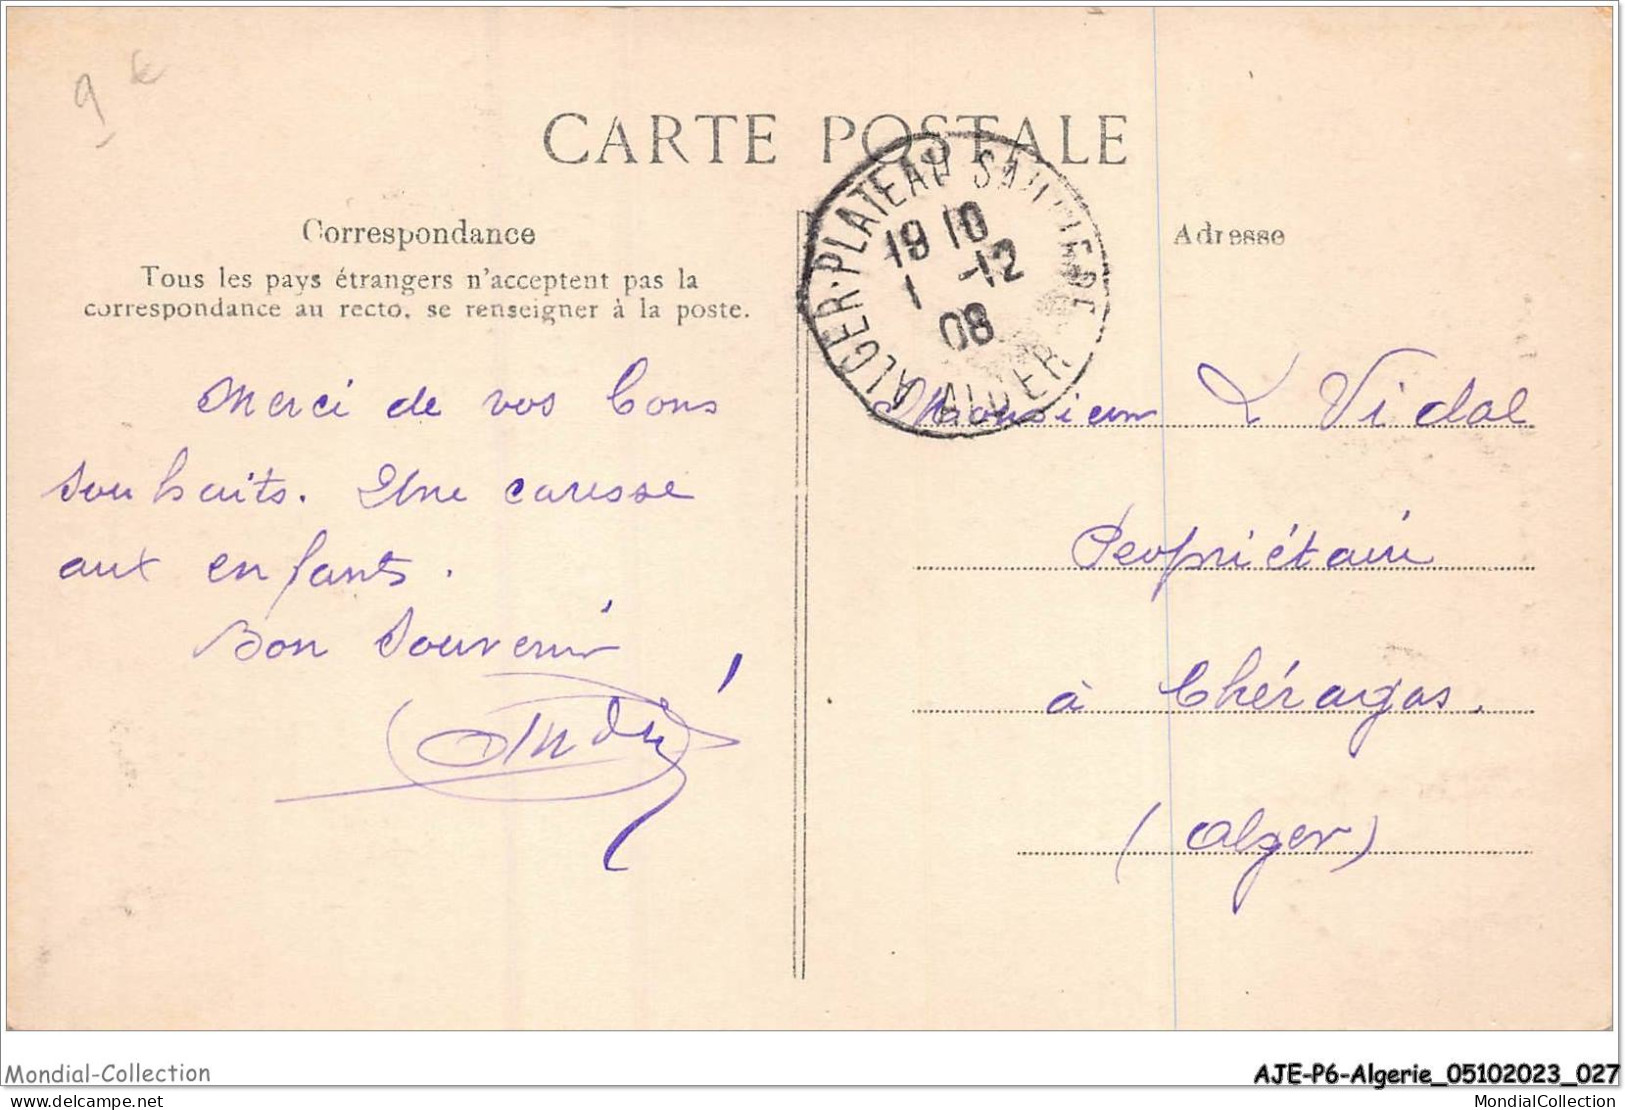 9 €
CARTE POSTALE
ALGER-PLATEAU SAULIERE
19 10
1 -12
08
ALGER
Correspondance
Tous les pays étrangers n'acceptent pas la
correspondance au recto, se renseigner à la poste.
Merci de vos bons
souhaits. Une caresse
aux enfants.
Bon souvenir
André
Adresse
Monsieur L Vidal
Propriétaire
à Chéragas.
(Alger)
Mondial-Collection
AJE-P6-Algerie_05102023_027
delcampe.net
MondialCollection